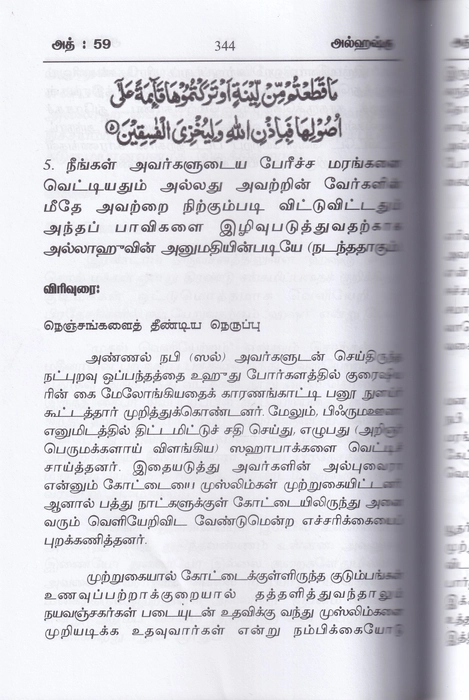 அத் : 59 344 அல்ஹஷ்ரு
مَا قَطَعْتُمْ مِّنْ لِّيْنَةٍ اَوْ تَرَكْتُمُوْهَا قَآئِمَةً عَلٰٓى
اُصُوْلِهَا فَبِاِذْنِ اللّٰهِ وَلِيُخْزِىَ الْفٰسِقِيْنَ ۵
5. நீங்கள் அவர்களுடைய பேரீச்ச மரங்களை
வெட்டியதும் அல்லது அவற்றின் வேர்களின்
மீதே அவற்றை நிற்கும்படி விட்டுவிட்டதும்
அந்தப் பாவிகளை இழிவுபடுத்துவதற்காக
அல்லாஹுவின் அனுமதியின்படியே (நடந்ததாகும்)
விரிவுரை:
நெஞ்சங்களைத் தீண்டிய நெருப்பு
அண்ணல் நபி (ஸல்) அவர்களுடன் செய்திருந்த
நட்புறவு ஒப்பந்தத்தை உஹுது போர்களத்தில் குரைஷி
ரின் கை மேலோங்கியதைக் காரணங்காட்டி பனூ நுளைர்
கூட்டத்தார் முறித்துக்கொண்டனர். மேலும், பிஃருமஊனா
எனுமிடத்தில் திட்டமிட்டுச் சதி செய்து, எழுபது (அறிஞர்
பெருமக்களாய் விளங்கிய) ஸஹாபாக்களை வெட்டிச்
சாய்த்தனர். இதையடுத்து அவர்களின் அல்புவைரா
என்னும் கோட்டையை முஸ்லிம்கள் முற்றுகையிட்டனர்.
ஆனால் பத்து நாட்களுக்குள் கோட்டையிலிருந்து அனை
வரும் வெளியேறிவிட வேண்டுமென்ற எச்சரிக்கையைப்
புறக்கணித்தனர்.
முற்றுகையால் கோட்டைக்குள்ளிருந்த குடும்பங்கள்
உணவுப்பற்றாக்குறையால் தத்தளித்துவந்தாலும்
நயவஞ்சகர்கள் படையுடன் உதவிக்கு வந்து முஸ்லிம்களை
முறியடிக்க உதவுவார்கள் என்று நம்பிக்கையோடு